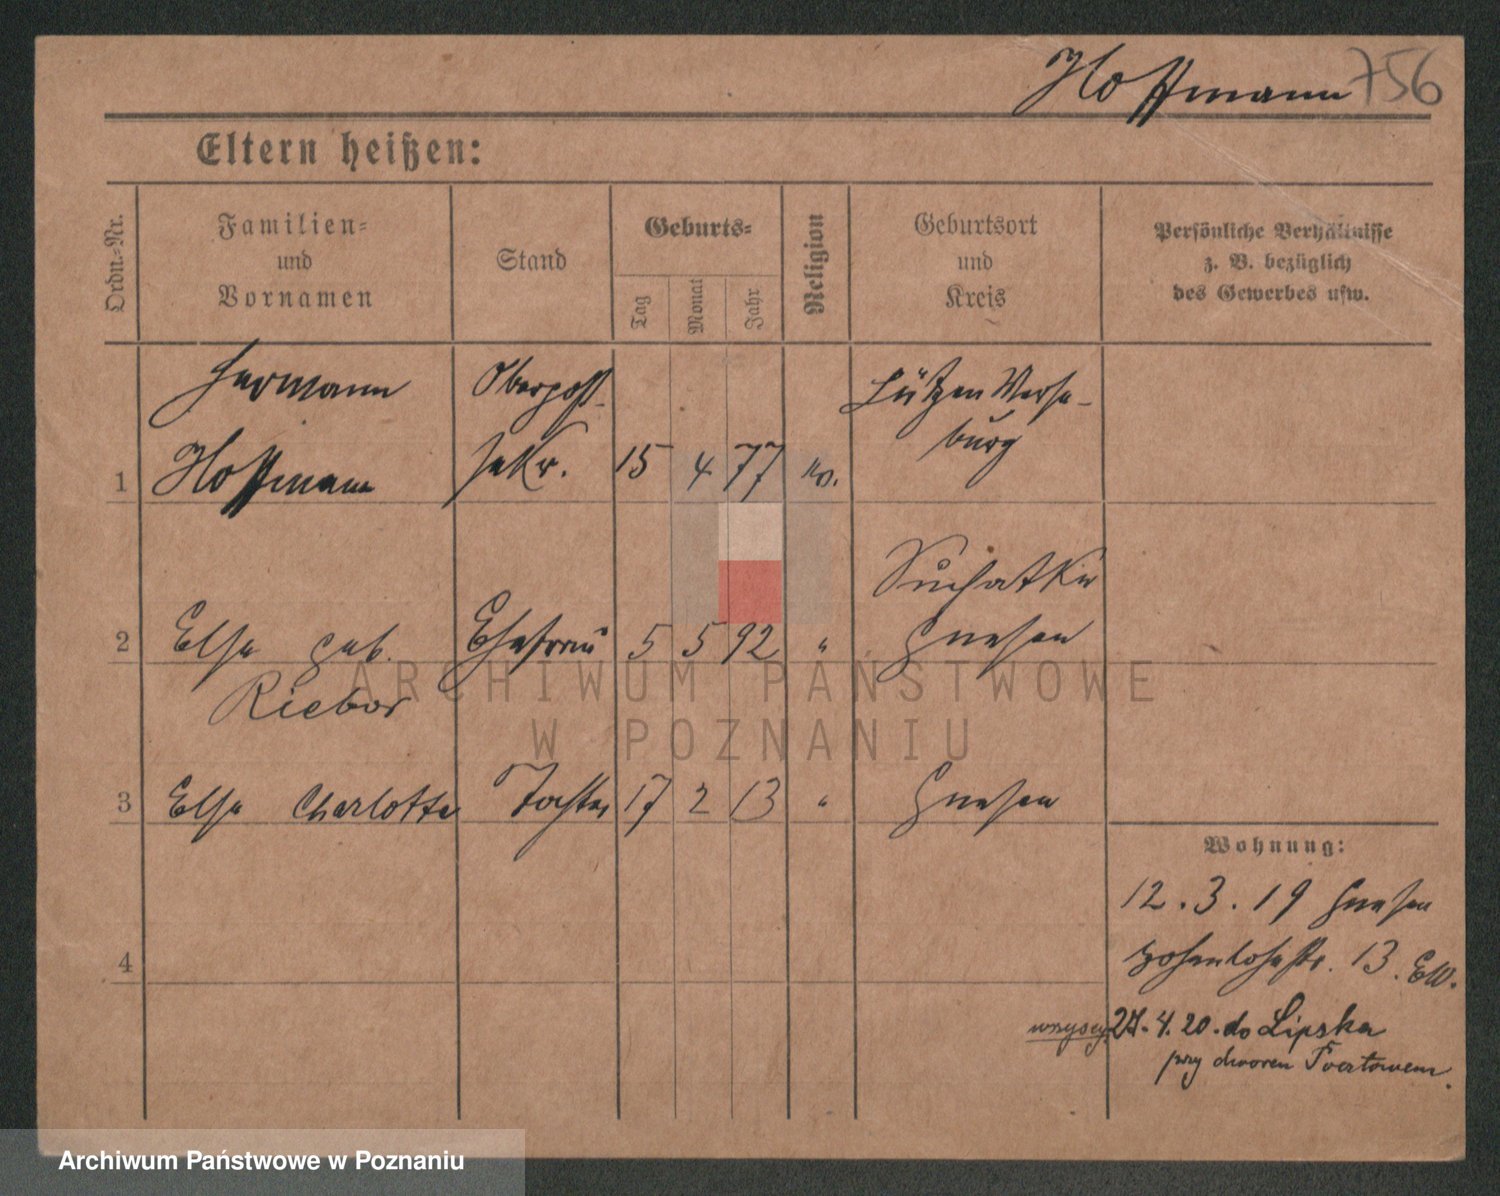 Hoffmann 756
Eltern heißen:
Ordn.-Nr.
Familien-
und
Vornamen
Stand
Geburts-
Tag
Monat
Jahr
Religion
Geburtsort
und
Kreis
Persönliche Verhältnisse
z. B. bezüglich
des Gewerbes usw.
Hermann
Hoffmann
Oberpost-
sekr.
1 15 4 77 ev.
Lützen Merse-
burg
2 Else geb.
Riebor
Ehefrau 5 5 92 "
Gnesen
3 Else Charlotte Tochter 17 2 13 " Gnesen
4
Wohnung:
12.3.19 Gnesen
Hohenlohestr. 13. EW.
wszyscy 27.4.20. do Lipska
przy dworcu
ARCHIWUM PAŃSTWOWE
W POZNANIU
Archiwum Państwowe w Poznaniu